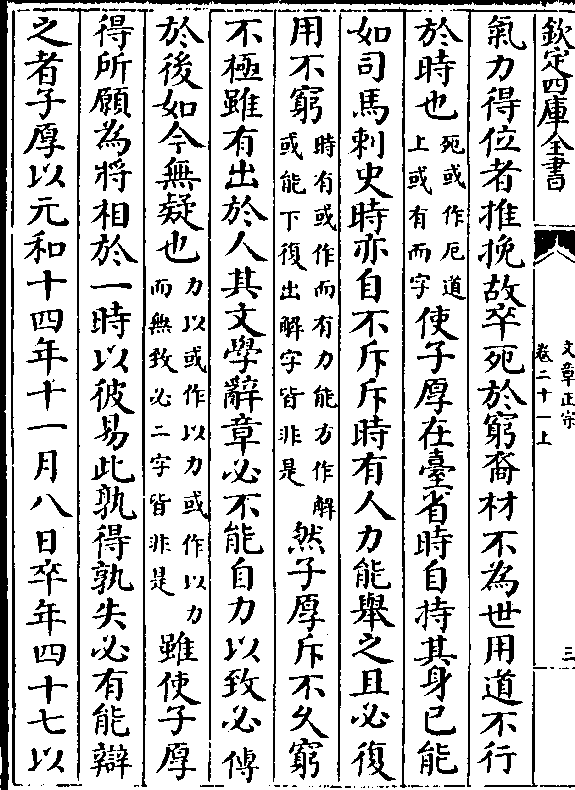 欽定四庫全書
文章正宗
卷二十一上
三
氣力得位者推挽故卒死於窮裔材不為世用道不行
於時也死或作厄道上或有而字使子厚在臺省時自持其身已能
如司馬刺史時亦自不斥斥時有人力能舉之且必復
用不窮時有或作而有力能方作解或能下復出解字皆非是然子厚斥不久窮
不極雖有出於人其文學辭章必不能自力以致必傳
於後如今無疑也力以或作以力或作以力而無致必二字皆非是雖使子厚
得所願為將相於一時以彼易此孰得孰失必有能辯
之者子厚以元和十四年十一月八日卒年四十七以